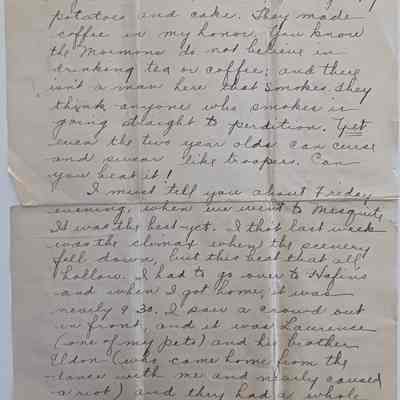 potatoes and cake. They made
coffee in my honor. You know
the Mormons do not believe in
drinking tea or coffee; and there
isn't a man here that smokes. They
think anyone who smokes is
going straight to perdition. Yet
even the two year olds can curse
and swear like troopers. Can
you beat it!
I must tell you about Friday
evening, when we went to Mesquite.
It was the best yet. I tho't last week
was the climax when the scenery
fell down, but this beat that all
hollow. I had to go over to
and when I got home, it was
nearly 9:30. I saw a crowd out
in front, and it was Laurence
(one of my pets) and his brother
Eldon (who came home from the
dance with me and nearly caused
a riot) and they had a whole